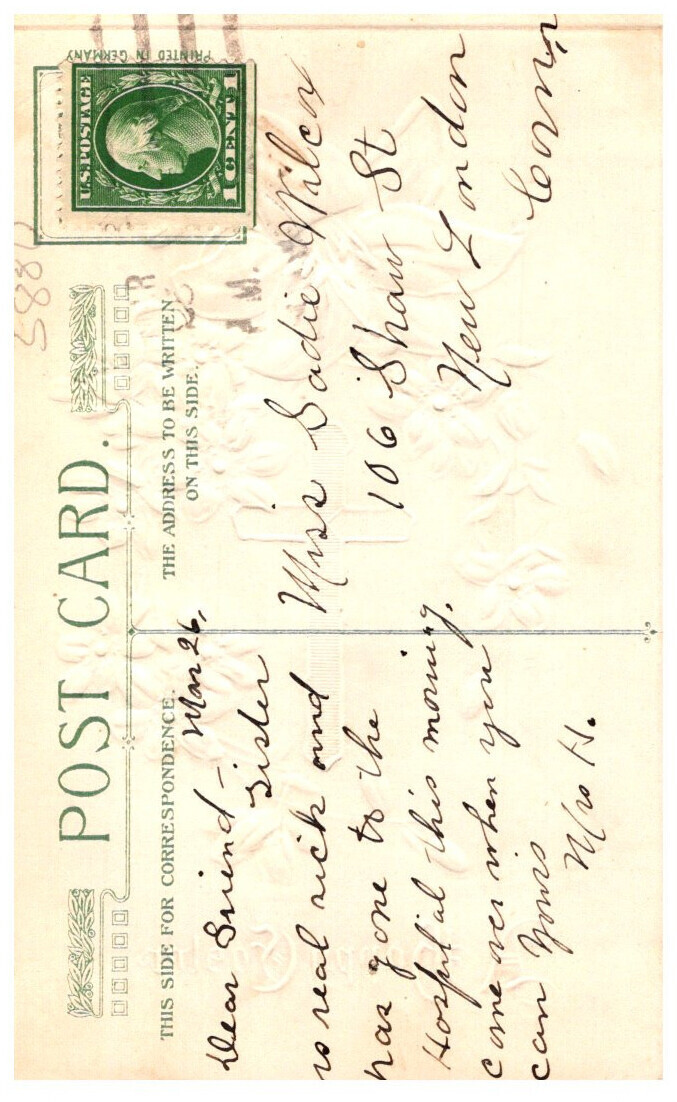 POST CARD.
THIS SIDE FOR CORRESPONDENCE.
THE ADDRESS TO BE WRITTEN
ON THIS SIDE.
PRINTED IN GERMANY
U.S. POSTAGE
1 CENT 1
5880
A.M.
Mar 26,
Dear Friend -
Sister
is real sick and
has gone to the
Hospital this morning.
come over when you
can Yours
Mrs H.
Miss Sadie Wilcox
106 Shaw St
New London
Conn,